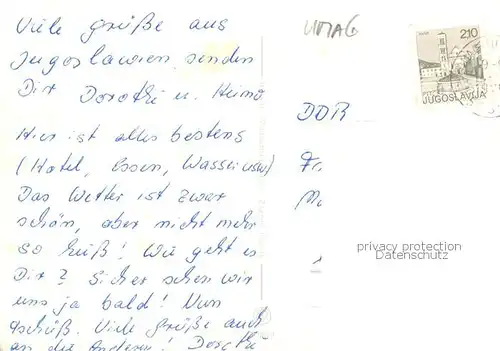 Viele Grüße aus
Jugoslawien senden
Dir Dorothi u. Heimo
Hier ist alles bestens
(Hotel, Essen, Wasser usw)
Das Wetter ist zwar
schön, aber nicht mehr
so heiß! Wie geht es
Dir? Sicher sehen wir
uns ja bald! Nun
tschüß. Viele Grüße auch
an die Anderen!
UMAG
2.10
JUGOSLAVIJA
DDR
privacy protection
Datenschutz